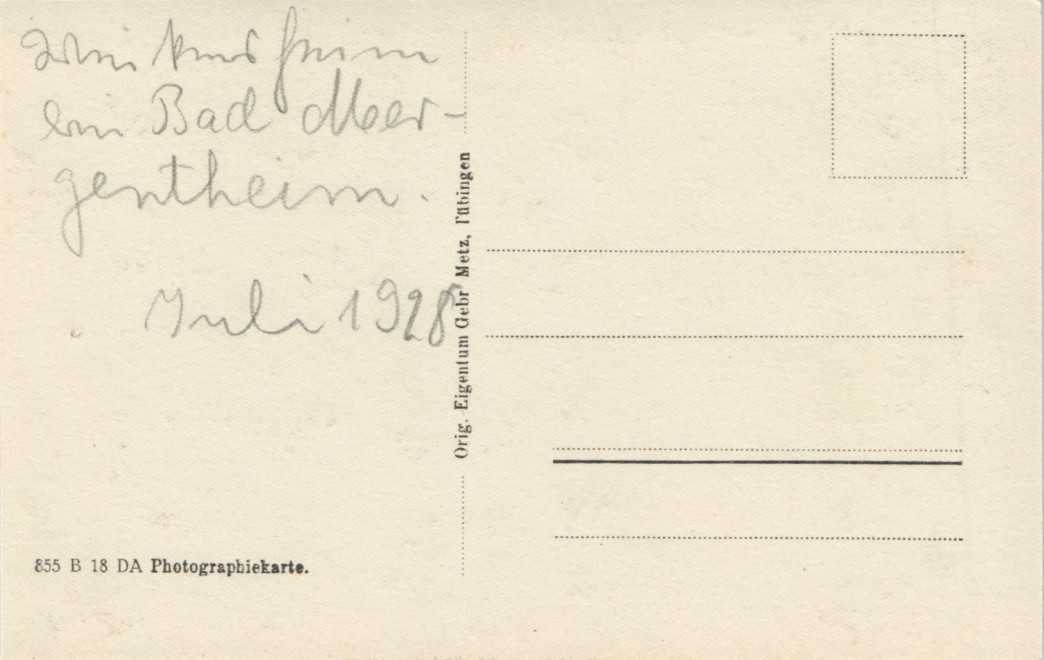 Weikersheim
bei Bad Mer-
gentheim.
Juli 1928
Orig.-Eigentum Gebr Metz, Tübingen
855 B 18 DA Photographiekarte.